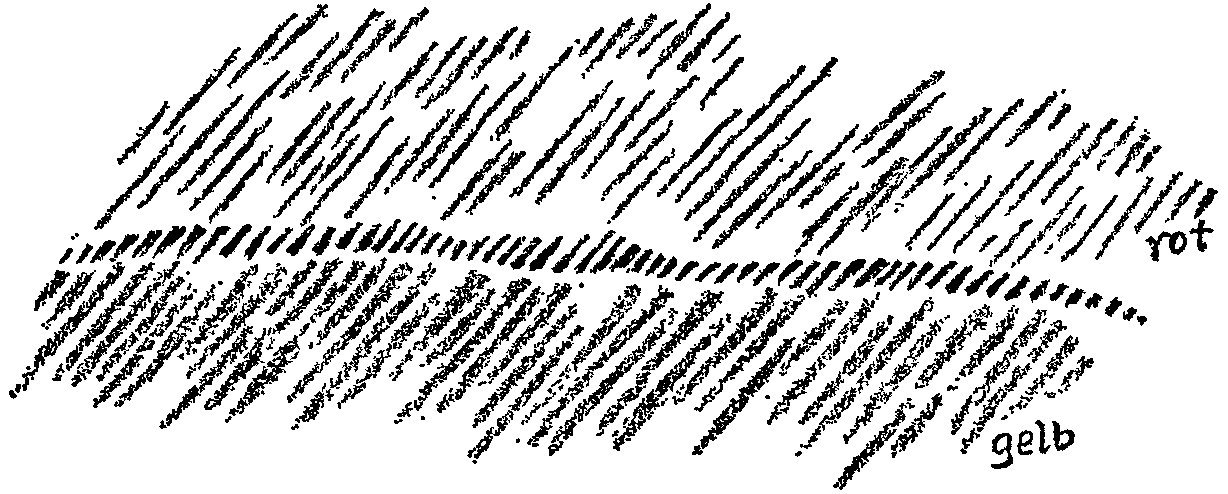 rot
gelb